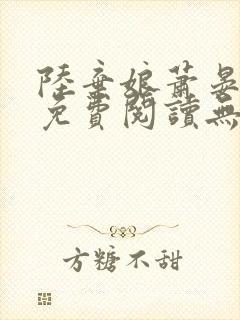 陸棄娘蕭晏
免費閱讀無
方糖不甜